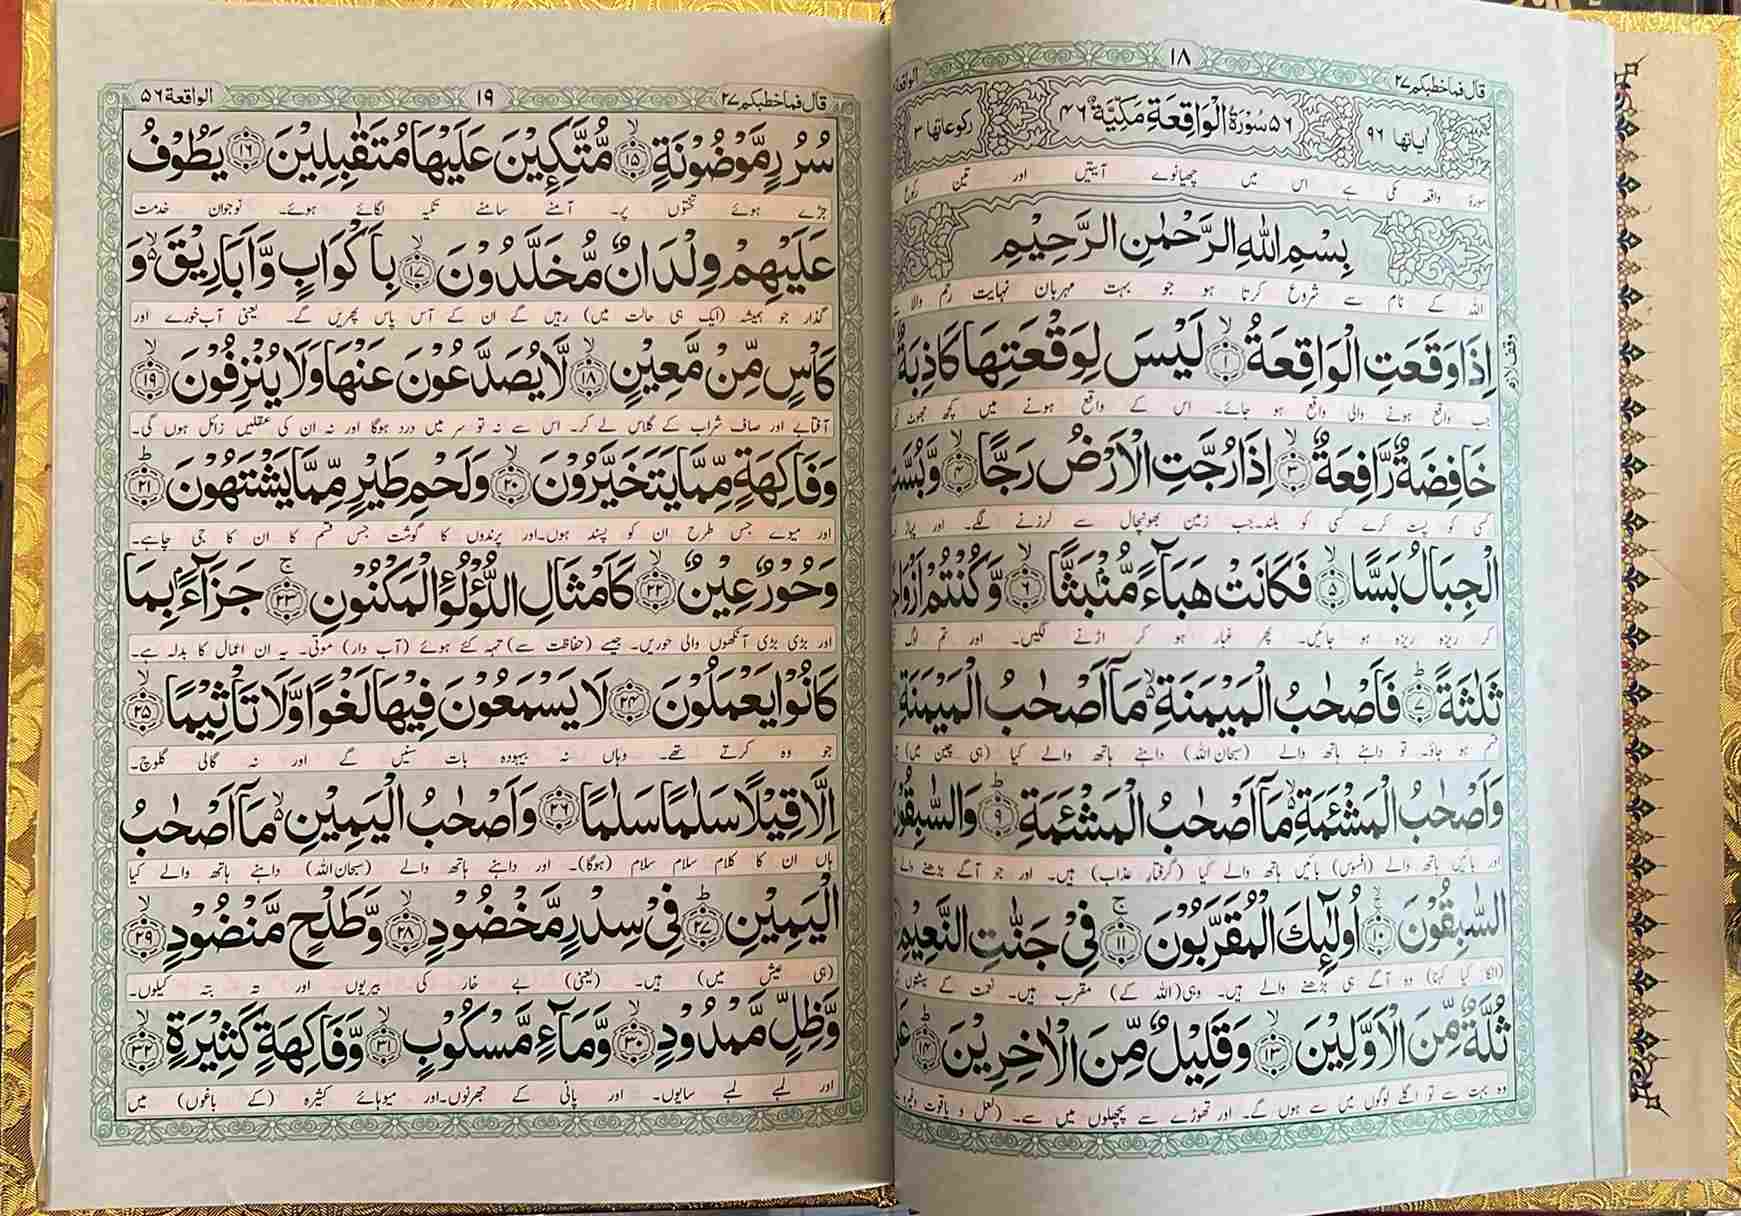 قال فما خطبكم ۲۷
۱۸
ایاتها ۹۶
۵۶ سُوْرَةُ الْوَاقِعَةِ مَكِّيَّةٌ ۴۶
رکوعاتها ۳
سورۂ واقعہ مکی ہے اس میں چھیانوے آیتیں اور تین رکوع
بِسْمِ اللّٰهِ الرَّحْمٰنِ الرَّحِيْمِ
اللہ کے نام سے شروع کرتا ہو جو بہت مہربان نہایت رحم والا ہے
اِذَا وَقَعَتِ الْوَاقِعَةُ ۙ﴿۱﴾ لَيْسَ لِوَقْعَتِهَا كَاذِبَةٌ
جب واقع ہونے والی واقع ہو جائے۔ اس کے واقع ہونے میں کچھ جھوٹ
خَافِضَةٌ رَّافِعَةٌ ۙ﴿۳﴾ اِذَا رُجَّتِ الْاَرْضُ رَجًّا ۙ﴿۴﴾ وَّبُسَّتِ
کسی کو پست کرے کسی کو بلند۔ جب زمین بھونچال سے لرزنے لگے۔ اور پہاڑ
الْجِبَالُ بَسًّا ۙ﴿۵﴾ فَكَانَتْ هَبَآءً مُّنْۢبَثًّا ۙ﴿۶﴾ وَّكُنْتُمْ اَزْوَاجًا
کر ریزہ ریزہ ہو جائیں۔ پھر غبار ہو کر اڑنے لگیں۔ اور تم لوگ
ثَلٰثَةً ؕ﴿۷﴾ فَاَصْحٰبُ الْمَيْمَنَةِ ۙ۬ مَاۤ اَصْحٰبُ الْمَيْمَنَةِ
قسم ہو جاؤ۔ تو داہنے ہاتھ والے (سبحان اللہ) داہنے ہاتھ والے کیا (ہی چین میں)
وَاَصْحٰبُ الْمَشْـَٔمَةِ ۙ۬ مَاۤ اَصْحٰبُ الْمَشْـَٔمَةِ ؕ﴿۹﴾ وَالسّٰبِقُوْنَ
اور بائیں ہاتھ والے (افسوس) بائیں ہاتھ والے کیا (گرفتار عذاب) ہیں۔ اور جو آگے بڑھنے والے
السّٰبِقُوْنَ ۚۙ﴿۱۰﴾ اُولٰٓئِكَ الْمُقَرَّبُوْنَ ۚ﴿۱۱﴾ فِيْ جَنّٰتِ النَّعِيْمِ
(انکا کیا کہنا) وہ آگے ہی بڑھنے والے ہیں۔ وہی (اللہ کے) مقرب ہیں۔ نعمت کے بہشتوں
ثُلَّةٌ مِّنَ الْاَوَّلِيْنَ ۙ﴿۱۳﴾ وَقَلِيْلٌ مِّنَ الْاٰخِرِيْنَ ؕ﴿۱۴﴾
وہ بہت سے تو اگلے لوگوں میں سے ہوں گے۔ اور تھوڑے سے پچھلوں میں سے۔ (لعل و یاقوت
قال فما خطبكم ۲۷
۱۹
الواقعة ۵۶
سُرُرٍ مَّوْضُوْنَةٍ ۙ﴿۱۵﴾ مُّتَّكِـِٕيْنَ عَلَيْهَا مُتَقٰبِلِيْنَ ﴿۱۶﴾ يَطُوْفُ
جڑے ہوئے تختوں پر۔ آمنے سامنے تکیہ لگائے ہوئے۔ نوجوان خدمت
عَلَيْهِمْ وِلْدَانٌ مُّخَلَّدُوْنَ ۙ﴿۱۷﴾ بِاَكْوَابٍ وَّاَبَارِيْقَ ۙ۬ وَ
گذار جو ہمیشہ (ایک ہی حالت میں) رہیں گے ان کے آس پاس پھریں گے۔ یعنی آب خورے اور
كَاْسٍ مِّنْ مَّعِيْنٍ ۙ﴿۱۸﴾ لَّا يُصَدَّعُوْنَ عَنْهَا وَلَا يُنْزِفُوْنَ ۙ﴿۱۹﴾
آفتابے اور صاف شراب کے گلاس لے کر۔ اس سے نہ تو سر میں درد ہوگا اور نہ ان کی عقلیں زائل ہوں گی۔
وَفَاكِهَةٍ مِّمَّا يَتَخَيَّرُوْنَ ۙ﴿۲۰﴾ وَلَحْمِ طَيْرٍ مِّمَّا يَشْتَهُوْنَ ؕ﴿۲۱﴾
اور میوے جس طرح ان کو پسند ہوں۔ اور پرندوں کا گوشت جس قسم کا ان کا جی چاہے۔
وَحُوْرٌ عِيْنٌ ۙ﴿۲۲﴾ كَاَمْثَالِ اللُّؤْلُؤِ الْمَكْنُوْنِ ۚ﴿۲۳﴾ جَزَآءًۢ بِمَا
اور بڑی بڑی آنکھوں والی حوریں۔ جیسے (حفاظت سے) تہہ کئے ہوئے (آب دار) موتی۔ یہ ان اعمال کا بدلہ ہے۔
كَانُوْا يَعْمَلُوْنَ ﴿۲۴﴾ لَا يَسْمَعُوْنَ فِيْهَا لَغْوًا وَّلَا تَاْثِيْمًا ۙ﴿۲۵﴾
جو وہ کرتے تھے۔ وہاں نہ بیہودہ بات سنیں گے اور نہ گالی گلوچ۔
اِلَّا قِيْلًا سَلٰمًا سَلٰمًا ﴿۲۶﴾ وَاَصْحٰبُ الْيَمِيْنِ ۙ۬ مَاۤ اَصْحٰبُ
ہاں ان کا کلام سلام سلام (ہوگا)۔ اور داہنے ہاتھ والے (سبحان اللہ) داہنے ہاتھ والے کیا
الْيَمِيْنِ ؕ﴿۲۷﴾ فِيْ سِدْرٍ مَّخْضُوْدٍ ۙ﴿۲۸﴾ وَّطَلْحٍ مَّنْضُوْدٍ ۙ﴿۲۹﴾
(ہی عیش میں) ہیں۔ (یعنی) بے خار کی بیریوں اور تہ بتہ کیلوں۔
وَّظِلٍّ مَّمْدُوْدٍ ۙ﴿۳۰﴾ وَّمَآءٍ مَّسْكُوْبٍ ۙ﴿۳۱﴾ وَّفَاكِهَةٍ كَثِيْرَةٍ ۙ﴿۳۲﴾
اور لمبے لمبے سایوں۔ اور پانی کے جھرنوں۔ اور میوہائے کثیرہ (کے باغوں) میں